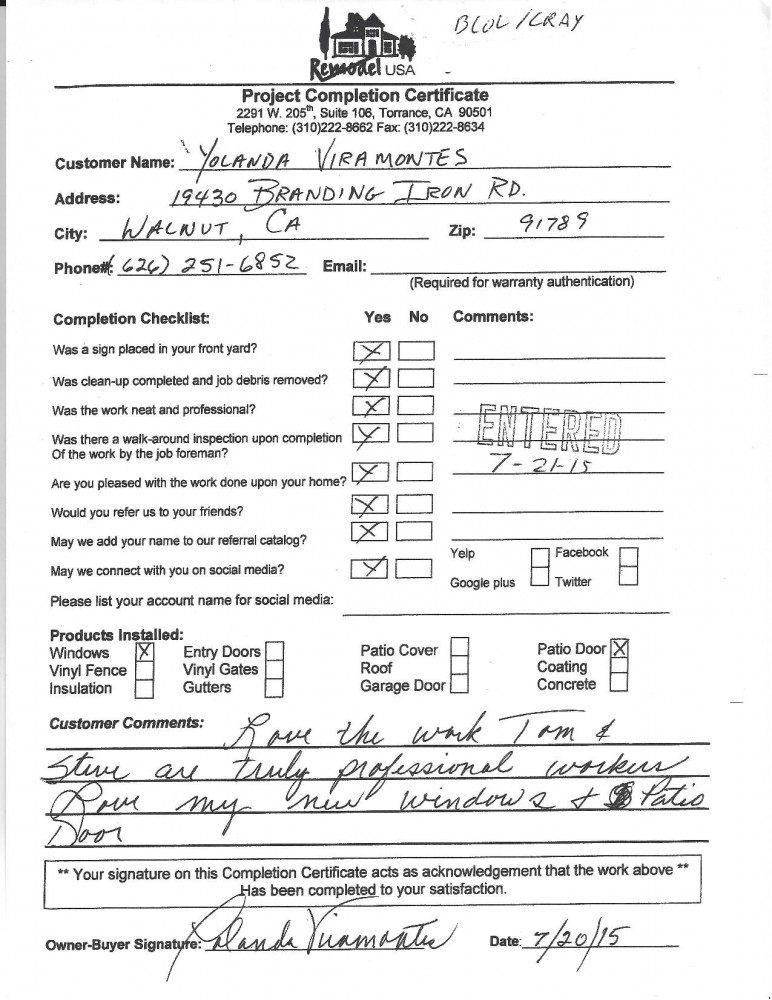 BLUL/CRAY
Remodel USA
Project Completion Certificate
2291 W. 205th, Suite 106, Torrance, CA 90501
Telephone: (310)222-8662 Fax: (310)222-8634
Customer Name: YOLANDA VIRAMONTES
Address: 19430 BRANDING IRON RD.
City: WALNUT, CA Zip: 91789
Phone#: (626) 251-6852 Email:
(Required for warranty authentication)
Completion Checklist: Yes No Comments:
Was a sign placed in your front yard? X
Was clean-up completed and job debris removed? X
Was the work neat and professional? X
ENTERED
Was there a walk-around inspection upon completion X
Of the work by the job foreman?
7-21-15
Are you pleased with the work done upon your home? X
Would you refer us to your friends? X
May we add your name to our referral catalog? X
Yelp Facebook
May we connect with you on social media? X
Google plus Twitter
Please list your account name for social media:
Products Installed:
Windows X Entry Doors Patio Cover Patio Door X
Vinyl Fence Vinyl Gates Roof Coating
Insulation Gutters Garage Door Concrete
Customer Comments: Love the work Tom &
Steve are truly professional workers
Love my new windows & Patio
Door
** Your signature on this Completion Certificate acts as acknowledgement that the work above **
Has been completed to your satisfaction.
Owner-Buyer Signature: Yolanda Viramontes Date: 7/20/15